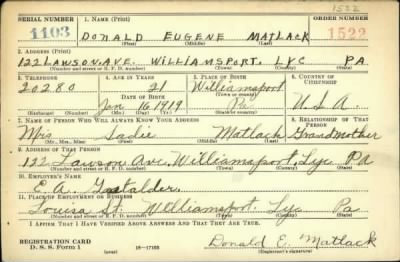 1522
SERIAL NUMBER 1. NAME (Print) ORDER NUMBER
1103 DONALD EUGENE MATLACK 1522
(First) (Middle) (Last)
2. ADDRESS (Print)
122 LAWSON AVE. WILLIAMSPORT. LYC PA.
(Number and street or R. F. D. number) (Town) (County) (State)
3. TELEPHONE 4. AGE IN YEARS 5. PLACE OF BIRTH 6. COUNTRY OF CITIZENSHIP
20280 21 Williamsport
DATE OF BIRTH (Town or county)
Jan 16 1919 Pa. U.S.A.
(Exchange) (Number) (Mo.) (Day) (Yr.) (State or country)
7. NAME OF PERSON WHO WILL ALWAYS KNOW YOUR ADDRESS 8. RELATIONSHIP OF THAT PERSON
Mrs Sadie Matlack Grandmother
(Mr., Mrs., Miss) (First) (Middle) (Last)
9. ADDRESS OF THAT PERSON
122 Lawson Ave, Williamsport, Lyc. PA
(Number and street or R. F. D. number) (Town) (County) (State)
10. EMPLOYER'S NAME
E. A.
11. PLACE OF EMPLOYMENT OR BUSINESS
Louisa St. Williamsport Lyc Pa
(Number and street or R. F. D. number) (Town) (County) (State)
I AFFIRM THAT I HAVE VERIFIED ABOVE ANSWERS AND THAT THEY ARE TRUE.
REGISTRATION CARD
D. S. S. Form 1 16-17105 Donald E. Matlack
(Registrant's signature)